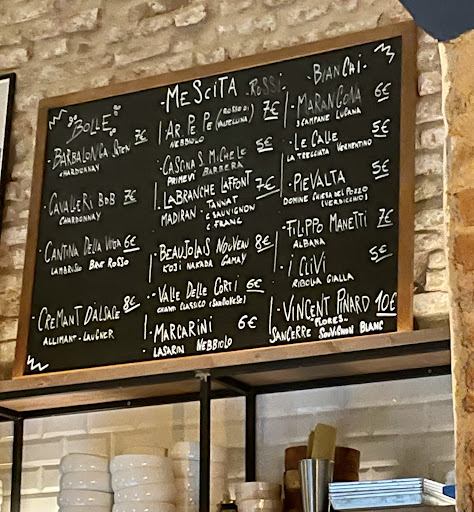 MESCITA
BOLLE
BARBALONGA 7€
CHARDONNAY
CAVALLERI BDB 7€
CHARDONNAY
CANTINA DELLA VOLTA 6€
LAMBRUSCO ROSSO
CREMANT D'ALSACE 8€
ALLIMANT-LAUGNER
ROSSI
AR.PE.PE (ROSSO DI VALTELLINA) 7€
NEBBIOLO
CASCINA S. MICHELE 5€
PRIMEVI BARBERA
LABRANCHE LAFFONT 7€
MADIRAN · TANNAT
C SAUVIGNON
C FRANC
BEAUJOLAIS NOUVEAU 8€
KOJI NAKADA GAMAY
VALLE DELLE CORTI 6€
CHIANTI CLASSICO (SANGIOVESE)
MARCARINI 6€
LASARIN NEBBIOLO
BIANCHI
MARANGONA 6€
LUGANA
LE CALLE 5€
LA TRECCIATA VERMENTINO
PIEVALTA 5€
DOMINE CHIESA DEL POZZO
(VERDICCHIO)
FILIPPO MANETTI 7€
ALBANA
I CLIVI 5€
RIBOLLA GIALLA
VINCENT PINARD 10€
FLORES
SANCERRE SAUVIGNON BLANC